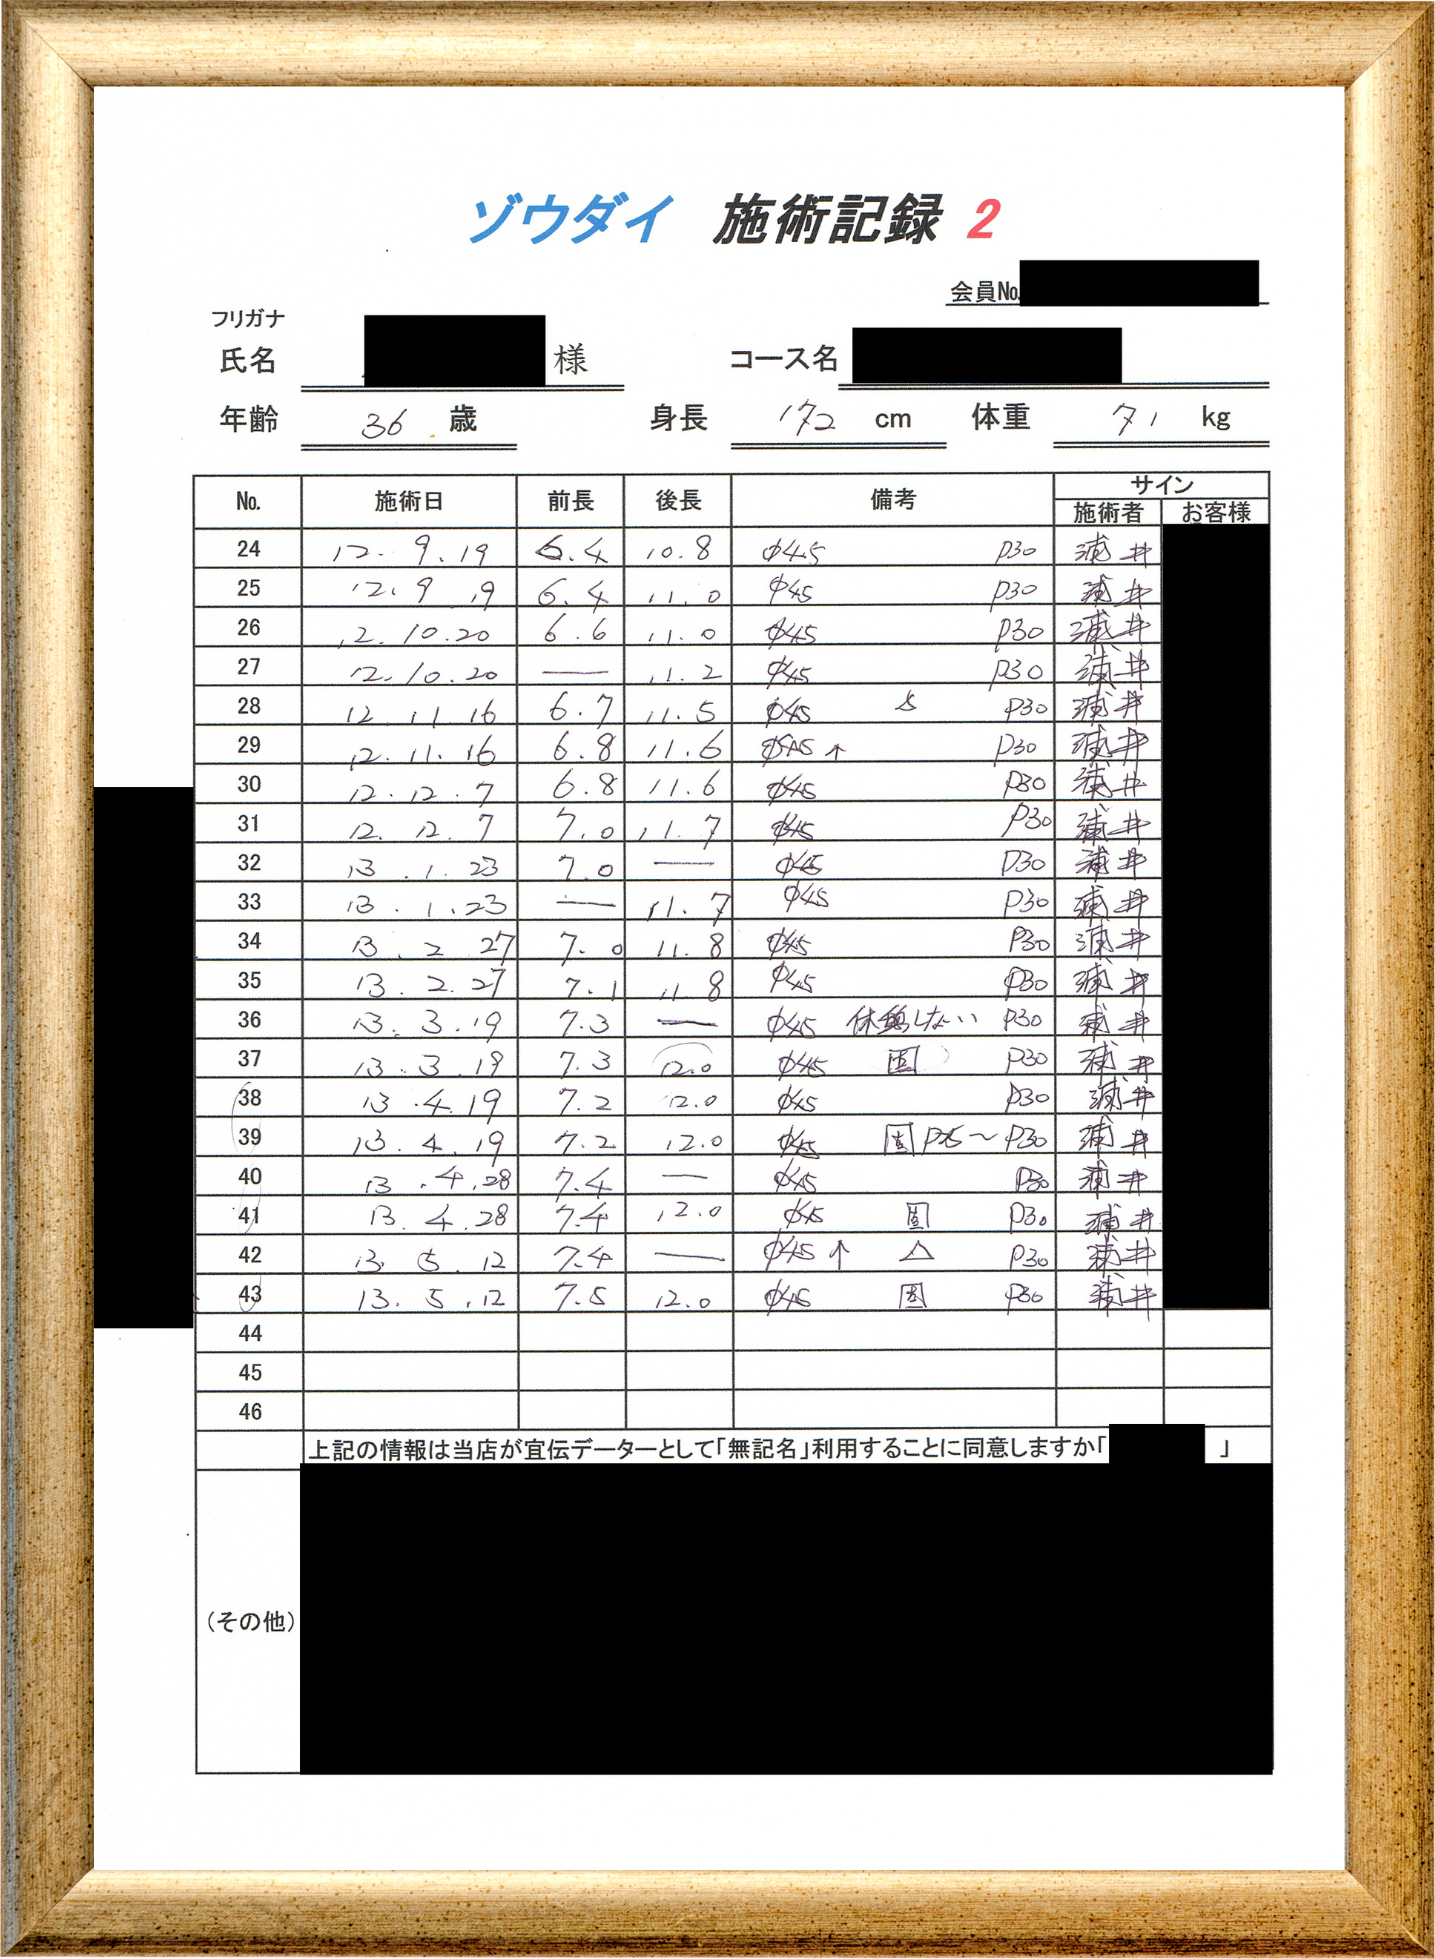 ゾウダイ 施術記録 2
会員No.
フリガナ
氏名 様 コース名
年齢 36 歳 身長 172 cm 体重 71 kg
No. 施術日 前長 後長 備考 サイン
施術者 お客様
24 12. 9. 19 6.4 10.8 φ45 P30 浦井
25 12. 9 19 6.4 11.0 φ45 P30 浦井
26 12. 10. 20 6.6 11.0 φ45 P30 浦井
27 12. 10. 20 — 11.2 φ45 P30 浦井
28 12 11 16 6.7 11.5 φ45 P30 浦井
29 12. 11. 16 6.8 11.6 φ45 ↑ P30 浦井
30 12. 12. 7 6.8 11.6 φ45 P30 浦井
31 12. 12. 7 7.0 11.7 φ45 P30 浦井
32 13. 1. 23 7.0 — φ45 P30 浦井
33 13. 1. 23 — 11.7 φ45 P30 浦井
34 13. 2 27 7.0 11.8 φ45 P30 浦井
35 13. 2. 27 7.1 11 8 φ45 P30 浦井
36 13. 3. 19 7.3 — φ45 休憩しない P30 浦井
37 13. 3. 19 7.3 12.0 φ45 固 P30 浦井
38 13 4. 19 7.2 12.0 φ45 P30 浦井
39 13. 4. 19 7.2 12.0 φ45 固 〜 P30 浦井
40 13. 4. 28 7.4 — φ45 P30 浦井
41 13. 4. 28 7.4 12.0 φ45 固 P30 浦井
42 13. 5. 12 7.4 — φ45 ↑ △ P30 浦井
43 13. 5. 12 7.5 12.0 φ45 固 P30 浦井
44
45
46
上記の情報は当店が宣伝データーとして「無記名」利用することに同意しますか「 」
(その他)